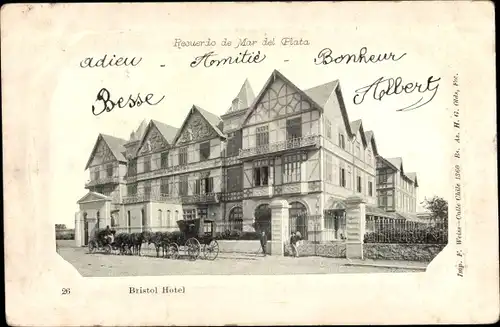 Recuerdo de Mar del Plata
adieu - Amitié - Bonheur
Besse Albert
26 Bristol Hotel
Imp. F. Weiss-Calle Chile 1360 Bs. As. H. G. Olds, Fot.